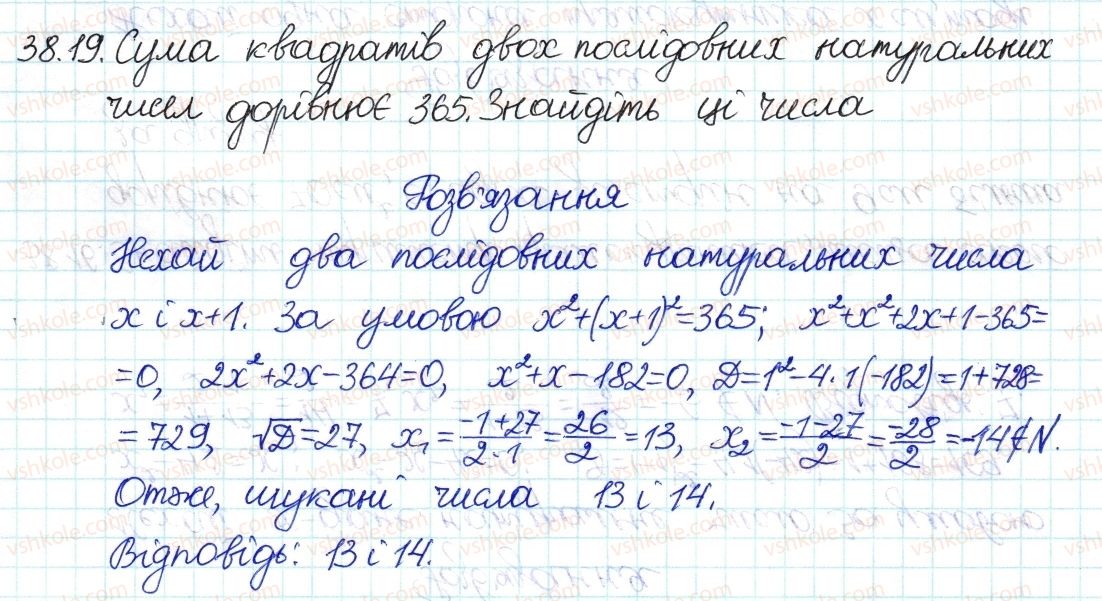 38.19. Сума квадратів двох послідовних натуральних
чисел дорівнює 365. Знайдіть ці числа
Розв'язання
Нехай два послідовних натуральних числа
x і x+1. За умовою x²+(x+1)²=365; x²+x²+2x+1-365=
=0, 2x²+2x-364=0, x²+x-182=0, D=1²-4·1(-182)=1+728=
=729, √D=27, x₁=(-1+27)/(2·1)=26/2=13, x₂=(-1-27)/2=-28/2=-14∉N.
Отже, шукані числа 13 і 14.
Відповідь: 13 і 14.